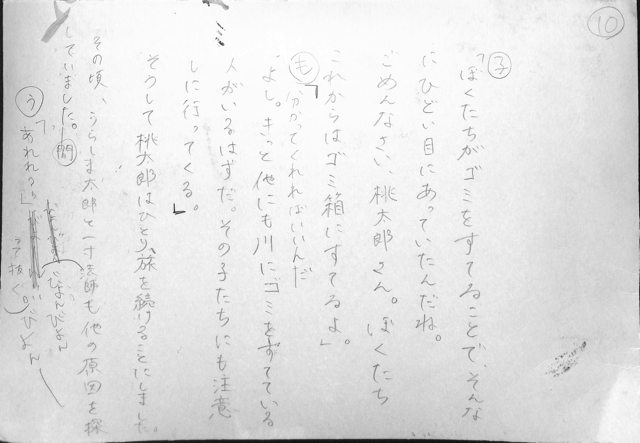 10
子
「ぼくたちがゴミをすてることで、そんな
にひどい目にあっていたんだね。
ごめんなさい、桃太郎さん。ぼくたち
これからはゴミ箱にすてるよ。」
も
「分かってくれればいいんだ
よし。きっと他にも川にゴミをすてている
人がいるはずだ。その子たちにも注意
しに行ってくる。」
そうして桃太郎はひとり、旅を続けることにしました。
その頃、うらしま太郎と一寸法師も他の原因を探
していました。
間
う
「あれれ？」
びよんびよん